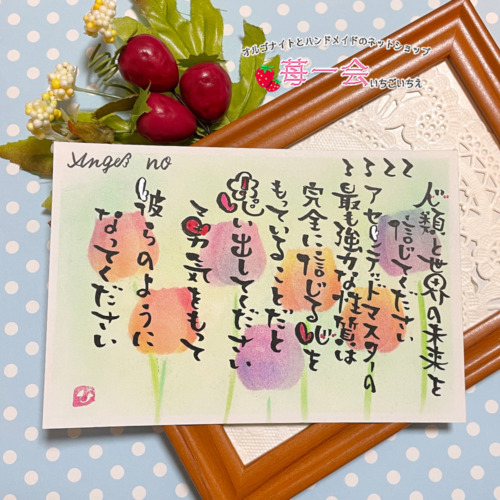 オルゴナイトとハンドメイドのネットショップ
苺一会
いちごいちえ
Angel no
3322
人類と世界の未来を
信じてください
アセンデッドマスターの
最も強力な性質は
完全に信じる心を
もっていることだと
思い出してください
勇気をもって
彼らのように
なってください